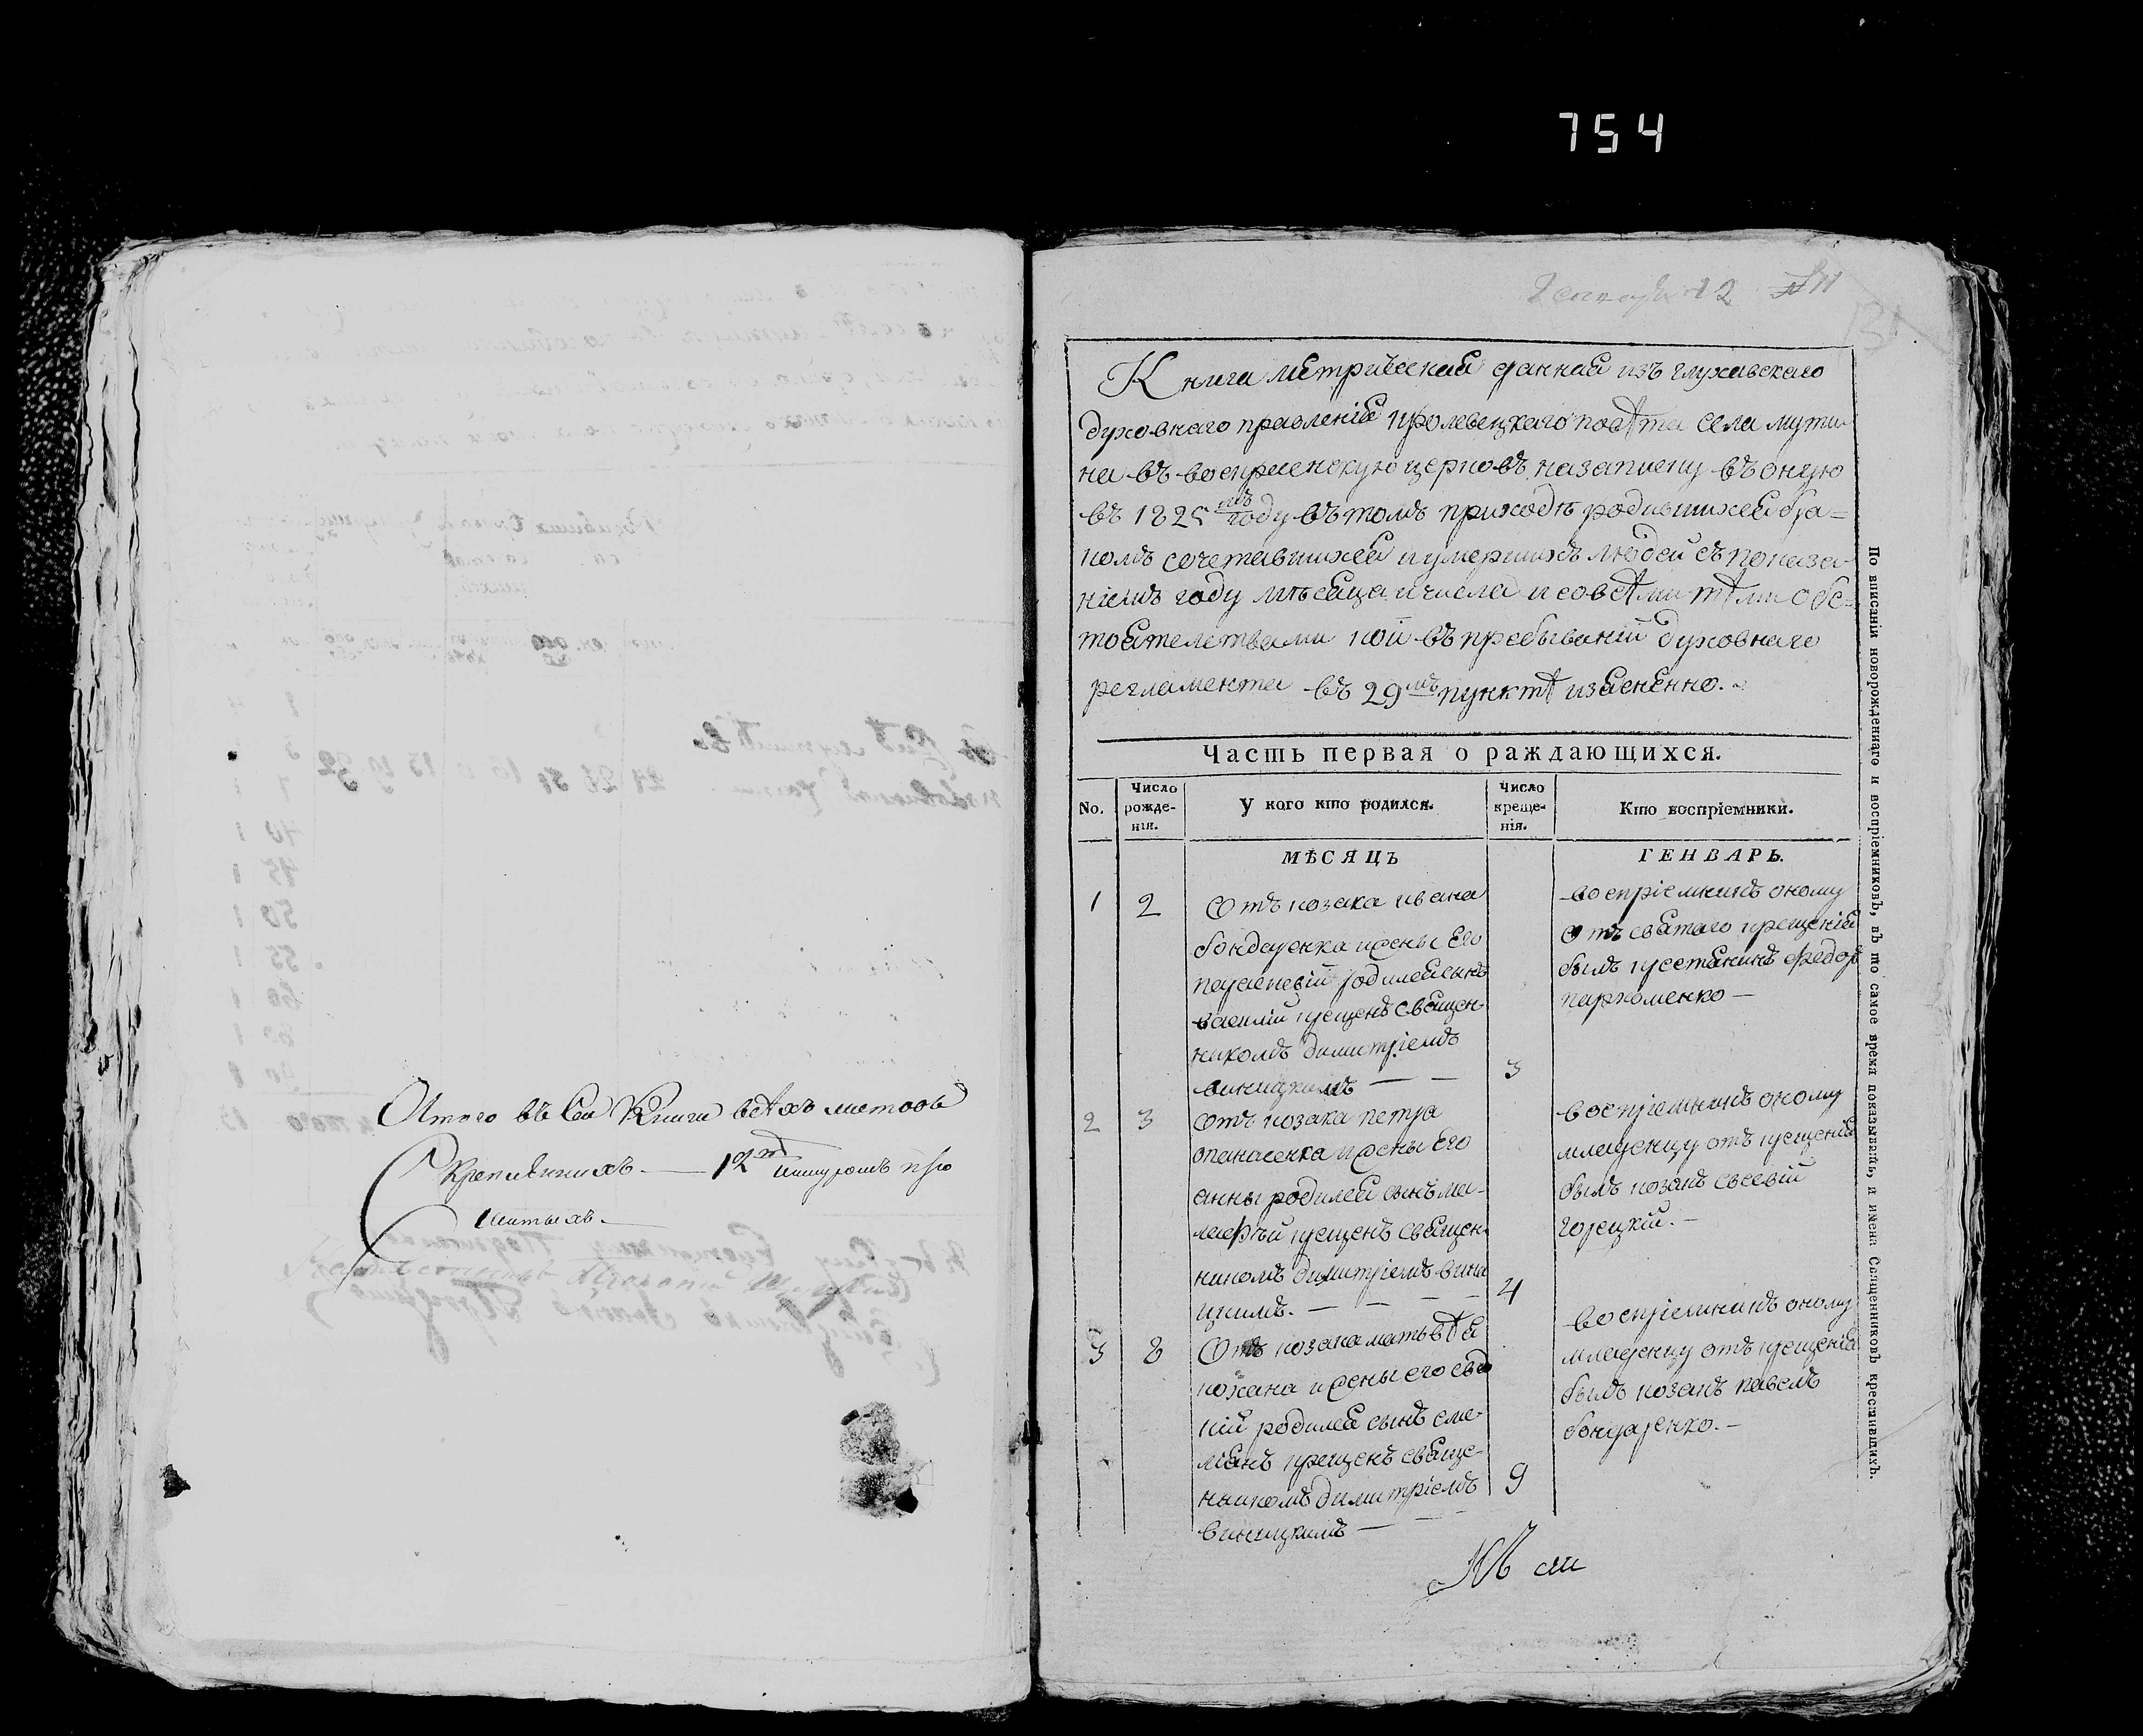 754
12
Итого въ сей книги всѣхъ листовъ
Скрепленныхъ — 12ть шнуромъ про
шитыхъ. —
Книга метрическая данная изъ глуховскаго
духовнаго правленія кролевецкаго повѣта села мути-
на въ воскресенскую церковъ на записку въ оную
въ 1825мъ году въ томъ приходѣ родившихся бра-
комъ сочетавшихся и умершихъ людей съ показа-
ніемъ году мѣсяца и числа и со всѣми тѣми обс-
тоятелствами кои въ пребываніи духовнаго
регламента въ 29мъ пунктѣ изяснено.
Часть первая о раждающихся.
No.
Число рожде-нія.
У кого кто родился.
Число креще-нія.
Кто воспріемники.
МѢСЯЦЪ
ГЕНВАРЬ.
1 2
Отъ козака ивана
бондаренка и жены его
параскевіи родился сынъ
василій крещенъ священ-
никомъ димитріемъ
виницкимъ — —
3
воспріемникъ оному
отъ святаго крещенія
былъ крестянинъ федоръ
пархоменко —
2 3
Отъ козака петра
опанасенка и жены его
анны родился сынъ ма-
лафѣй крещенъ священ-
никомъ димитріемъ вини
цкимъ. — — — —
4
воспріемникъ оному
младенцу отъ крещенія
былъ козакъ евсевій
горецкій. —
3 8
Отъ козака матьвѣя
кожана и жены его евдо
кіи родился сынъ еме-
ліянъ крещенъ свяще-
нникомъ димитріемъ
виницкимъ — — —
9
воспріемникъ оному
младенцу отъ крещенія
былъ козакъ павелъ
бондаренко. —
По вписаніи новорожденнаго и воспріемниковъ, въ то самое время показывать, и имена Священниковъ крестившихъ.